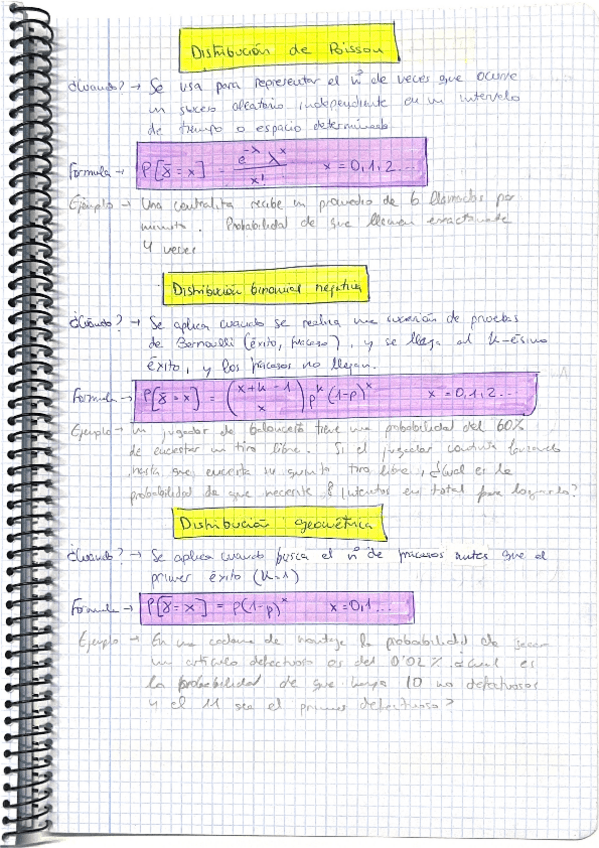 Distribución de Poisson
¿Cuando? → Se usa para representar el nº de veces que ocurre
un suceso aleatorio independiente en un intervalo
de tiempo o espacio determinado
Formula → P[ξ = x] = e^-λ λ^x / x! x = 0, 1, 2...
Ejemplo → Una centralita recibe un promedio de 6 llamadas por
minuto. Probabilidad de que llamen exactamente
4 veces
Distribución binomial negativa
¿Cuándo? → Se aplica cuando se realiza una sucesión de pruebas
de Bernoulli (éxito, fracaso), y se llega al k-ésimo
éxito, y los fracasos no llegan.
Formula → P[ξ = x] = (x+k-1 / x) p^k (1-p)^x x = 0, 1, 2...
Ejemplo → Un jugador de baloncesto tiene una probabilidad del 60%
de encestar un tiro libre. Si el jugador continúa lanzando
hasta que encesta su quinto tiro libre, ¿cual es la
probabilidad de que necesite 8 intentos en total para lograrlo?
Distribución geométrica
¿Cuando? → Se aplica cuando busca el nº de fracasos antes que el
primer éxito (k=1)
Formula → P[ξ = x] = p(1-p)^x x = 0, 1...
Ejemplo → En una cadena de montaje la probabilidad de
un artículo defectuoso es del 0'02% ¿cual es
la probabilidad de que haya 10 no defectuosos
y el 11 sea el primer defectuoso?